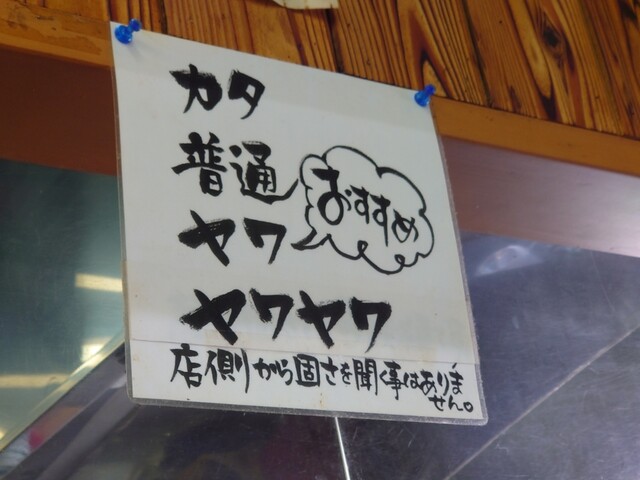 カタ
普通
おすすめ
ヤワ
ヤワヤワ
店側から固さを聞く事はありま
せん。